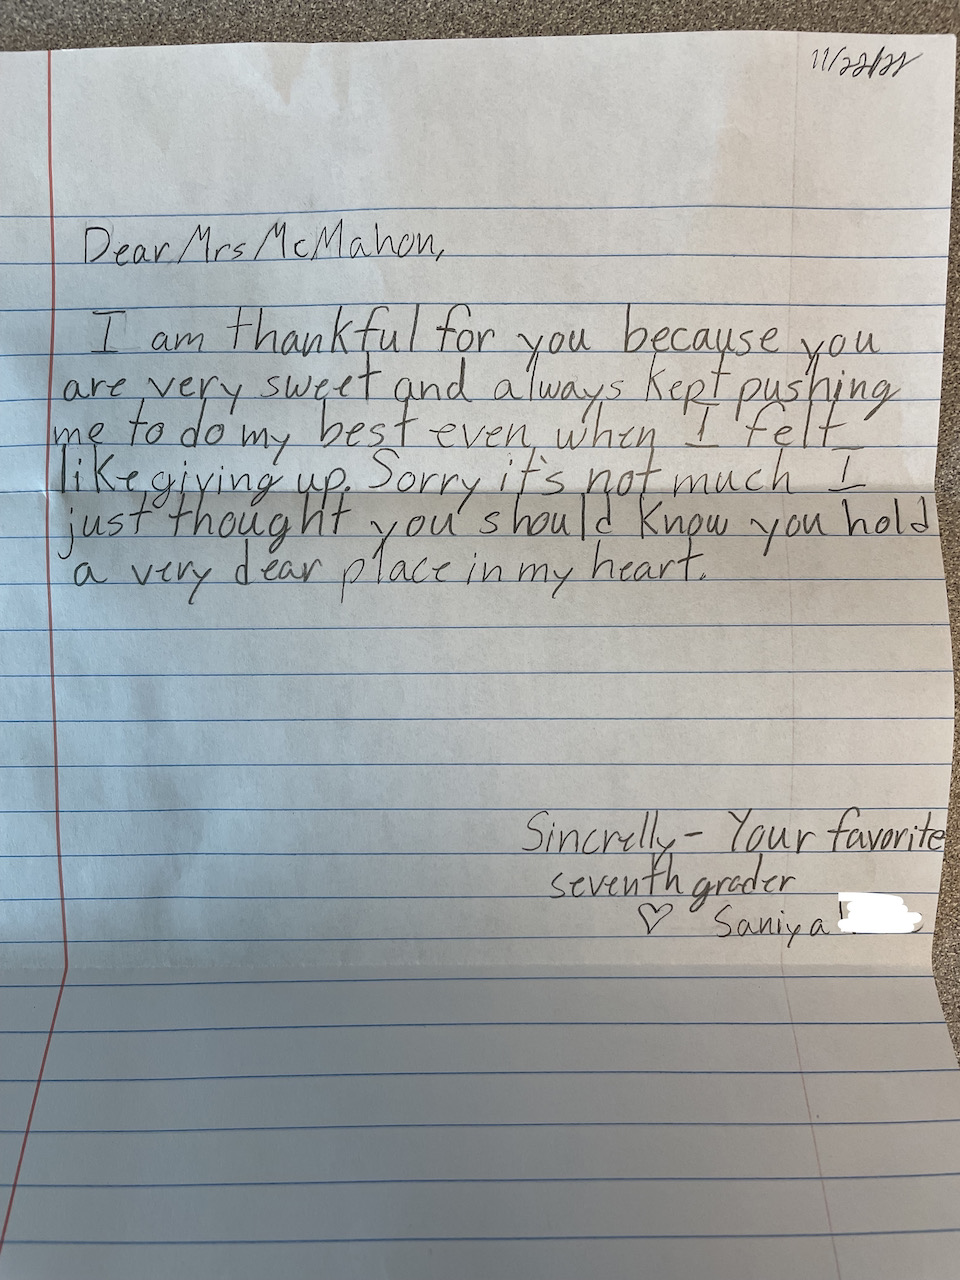 11/22/22
Dear Mrs McMahon,
I am thankful for you because you
are very sweet and always kept pushing
me to do my best even when I felt
like giving up. Sorry it's not much I
just thought you should know you hold
a very dear place in my heart.
Sincrelly - Your favorite
seventh grader
♡ Saniya